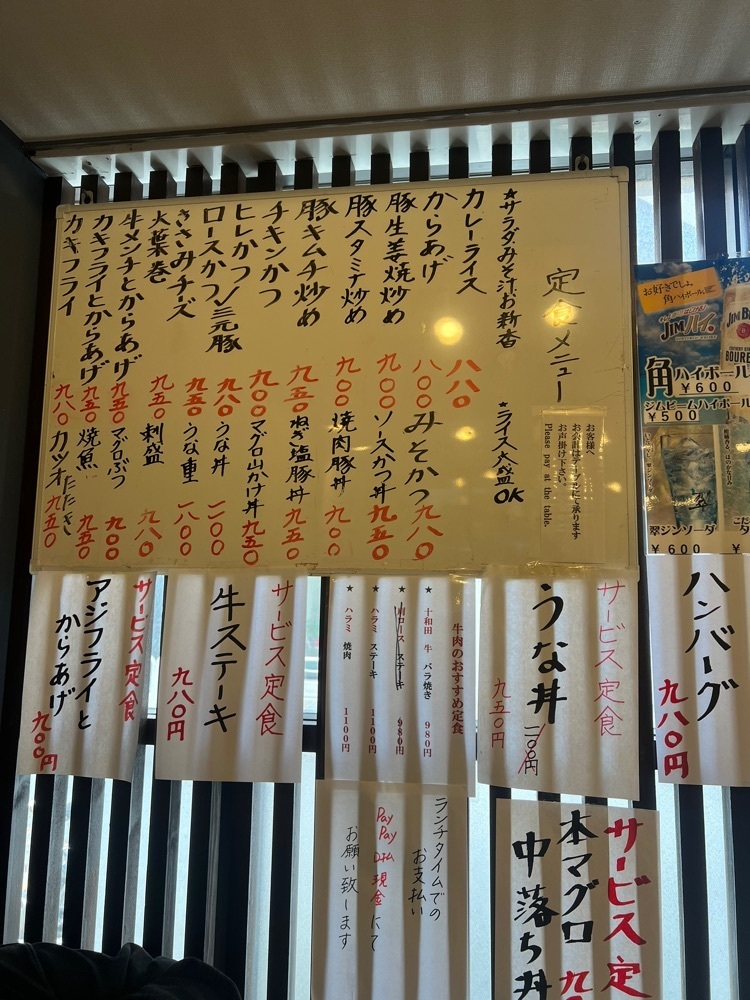 定食メニュー
お客様へ
お会計はテーブルにて承ります
お声掛け下さい。
Please pay at the table.
★サラダみそ汁お新香 ★ライス大盛OK
カレーライス 八八〇
からあげ 八〇〇
豚生姜焼炒め 九〇〇
豚スタミナ炒め 九〇〇
豚キムチ炒め 九五〇
チキンかつ 九〇〇
ヒレかつ/三元豚 九八〇
ロースかつ 九五〇
ささみチーズ
大葉巻 九五〇
牛メンチとからあげ 九五〇
カキフライとからあげ 九五〇
カキフライ 九八〇
みそかつ 九八〇
ソースかつ丼 九五〇
焼肉豚丼 九〇〇
ねぎ塩豚丼 九五〇
マグロ山かけ丼 九五〇
うな丼 一一〇〇
うな重 一八〇〇
刺盛 九八〇
マグロぶつ 九〇〇
焼魚 九五〇
カツオたたき 九五〇
お好きでしょ
角ハイボール
JIMハイ
角ハイボール
￥600
ジムビームハイボール
￥500
翠ジンソーダ
￥600
JIM BE
BOURB
ハンバーグ
九八〇円
サービス定食
うな丼
一一〇〇円
九五〇円
牛肉のおすすめ定食
★ 十和田 牛 バラ焼き 980円
★ 肩ロース ステーキ 980円
★ ハラミ ステーキ 1100円
★ ハラミ 焼肉 1100円
サービス定食
牛ステーキ
九八〇円
サービス定食
アジフライと
からあげ
九〇〇円
ランチタイムでの
お支払い
PayPay
又は 現金にて
お願い致します
サービス定
本マグロ
中落ち丼
九